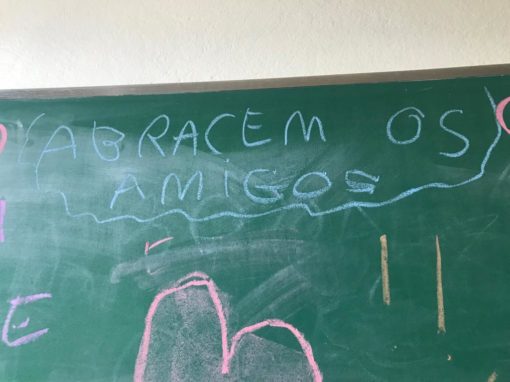 ABRACEM OS
AMIGOS
E